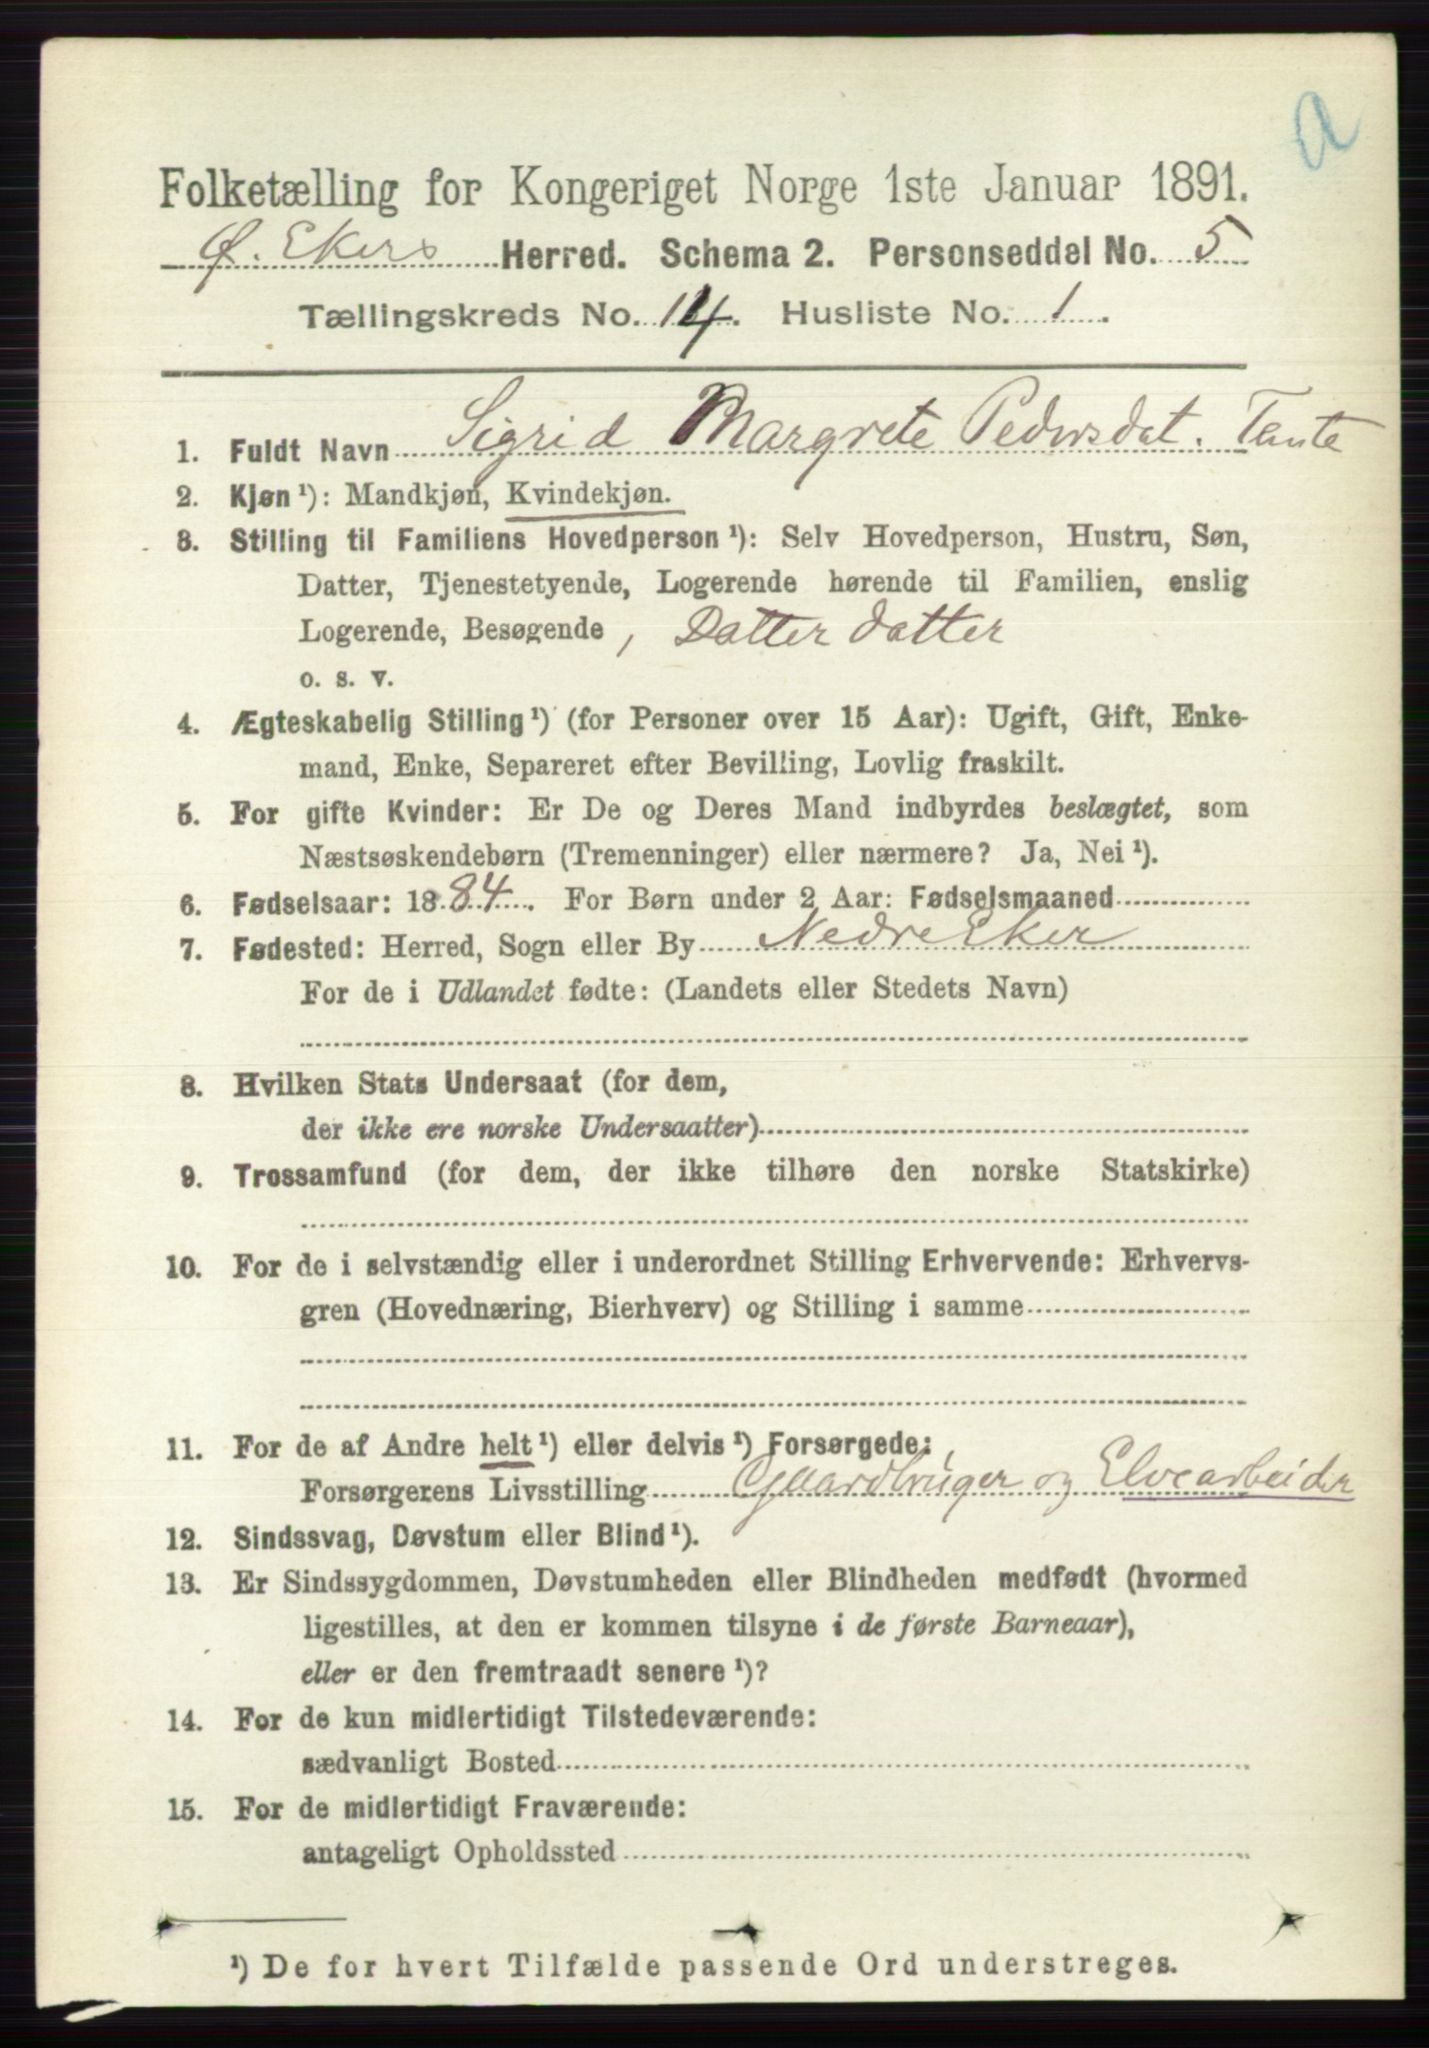 a
Folketælling for Kongeriget Norge 1ste Januar 1891.
Ø. Ekers Herred. Schema 2. Personseddel No. 5
Tællingskreds No. 14. Husliste No. 1.
1. Fuldt Navn Sigrid Margrete Pedersdat.
2. Kjøn ¹): Mandkjøn, Kvindekjøn.
3. Stilling til Familiens Hovedperson ¹): Selv Hovedperson, Hustru, Søn,
Datter, Tjenestetyende, Logerende hørende til Familien, enslig
Logerende, Besøgende, Datter datter
o. s. v.
4. Ægteskabelig Stilling ¹) (for Personer over 15 Aar): Ugift, Gift, Enke-
mand, Enke, Separeret efter Bevilling, Lovlig fraskilt.
5. For gifte Kvinder: Er De og Deres Mand indbyrdes beslægtet, som
Næstsøskendebørn (Tremenninger) eller nærmere? Ja, Nei ¹).
6. Fødselsaar: 1884. For Børn under 2 Aar: Fødselsmaaned
7. Fødested: Herred, Sogn eller By Nedre Eker
For de i Udlandet fødte: (Landets eller Stedets Navn)
8. Hvilken Stats Undersaat (for dem,
der ikke ere norske Undersaatter)
9. Trossamfund (for dem, der ikke tilhøre den norske Statskirke)
10. For de i selvstændig eller i underordnet Stilling Erhvervende: Erhvervs-
gren (Hovednæring, Bierhverv) og Stilling i samme
11. For de af Andre helt ¹) eller delvis ¹) Forsørgede:
Forsørgerens Livsstilling Gaardbruger og Elvearbeider
12. Sindssvag, Døvstum eller Blind ¹).
13. Er Sindssygdommen, Døvstumheden eller Blindheden medfødt (hvormed
ligestilles, at den er kommen tilsyne i de første Barneaar),
eller er den fremtraadt senere ¹)?
14. For de kun midlertidigt Tilstedeværende:
sædvanligt Bosted
15. For de midlertidigt Fraværende:
antageligt Opholdssted
¹) De for hvert Tilfælde passende Ord understreges.